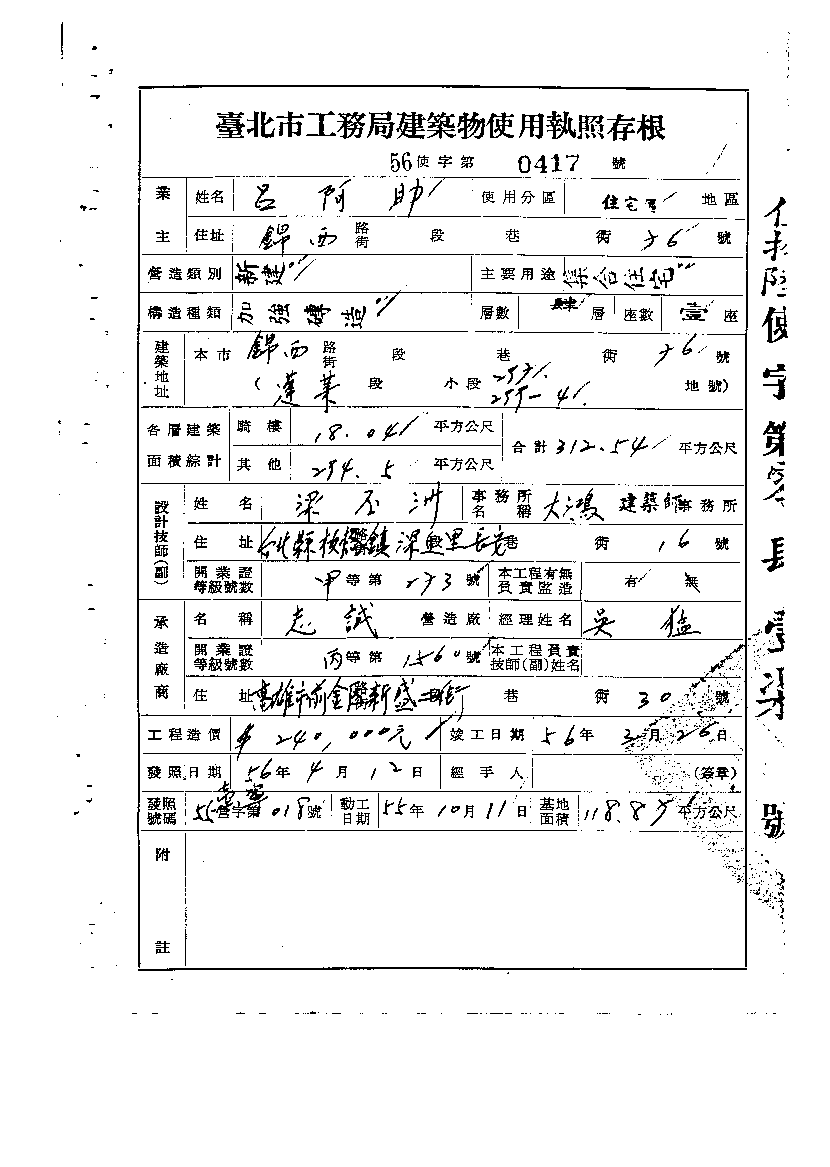 臺北市工務局建築物使用執照存根
56使字第 0417 號
業主 姓名 呂阿助 使用分區 住宅 地區
住址 錦西 路街 段 巷 衖 26 號
營造類別 新建 主要用途 集合住宅
構造種類 加強磚造 層數 肆 層 座數 壹 座
建築地址 本市 錦西 路街 段 巷 衖 26 號
(蓬萊 段 小段 地號)
各層建築面積綜計 騎樓 18.04 平方公尺 合計 312.54 平方公尺
其他 294.5 平方公尺
設計技師(副) 姓名 梁 洲 事務所名稱 大鴻 建築師事務所
住址 台北縣板橋鎮深 里長 巷 衖 16 號
開業證等級號數 甲等第 273 號 本工程有無負責監造 有 無
承造廠商 名稱 志誠 營造廠 經理姓名 吳猛
開業證等級號數 丙等第 1560 號 本工程負責技師(副)姓名
住址 高雄市前金區新盛 街 巷 衖 30 號
工程造價 $240,000元 竣工日期 56年3月26日
發照日期 56年4月12日 經手人 (簽章)
發照號碼 55營字第018號 動工日期 55年10月11日 基地面積 118.85 平方公尺
附註
使字第 號